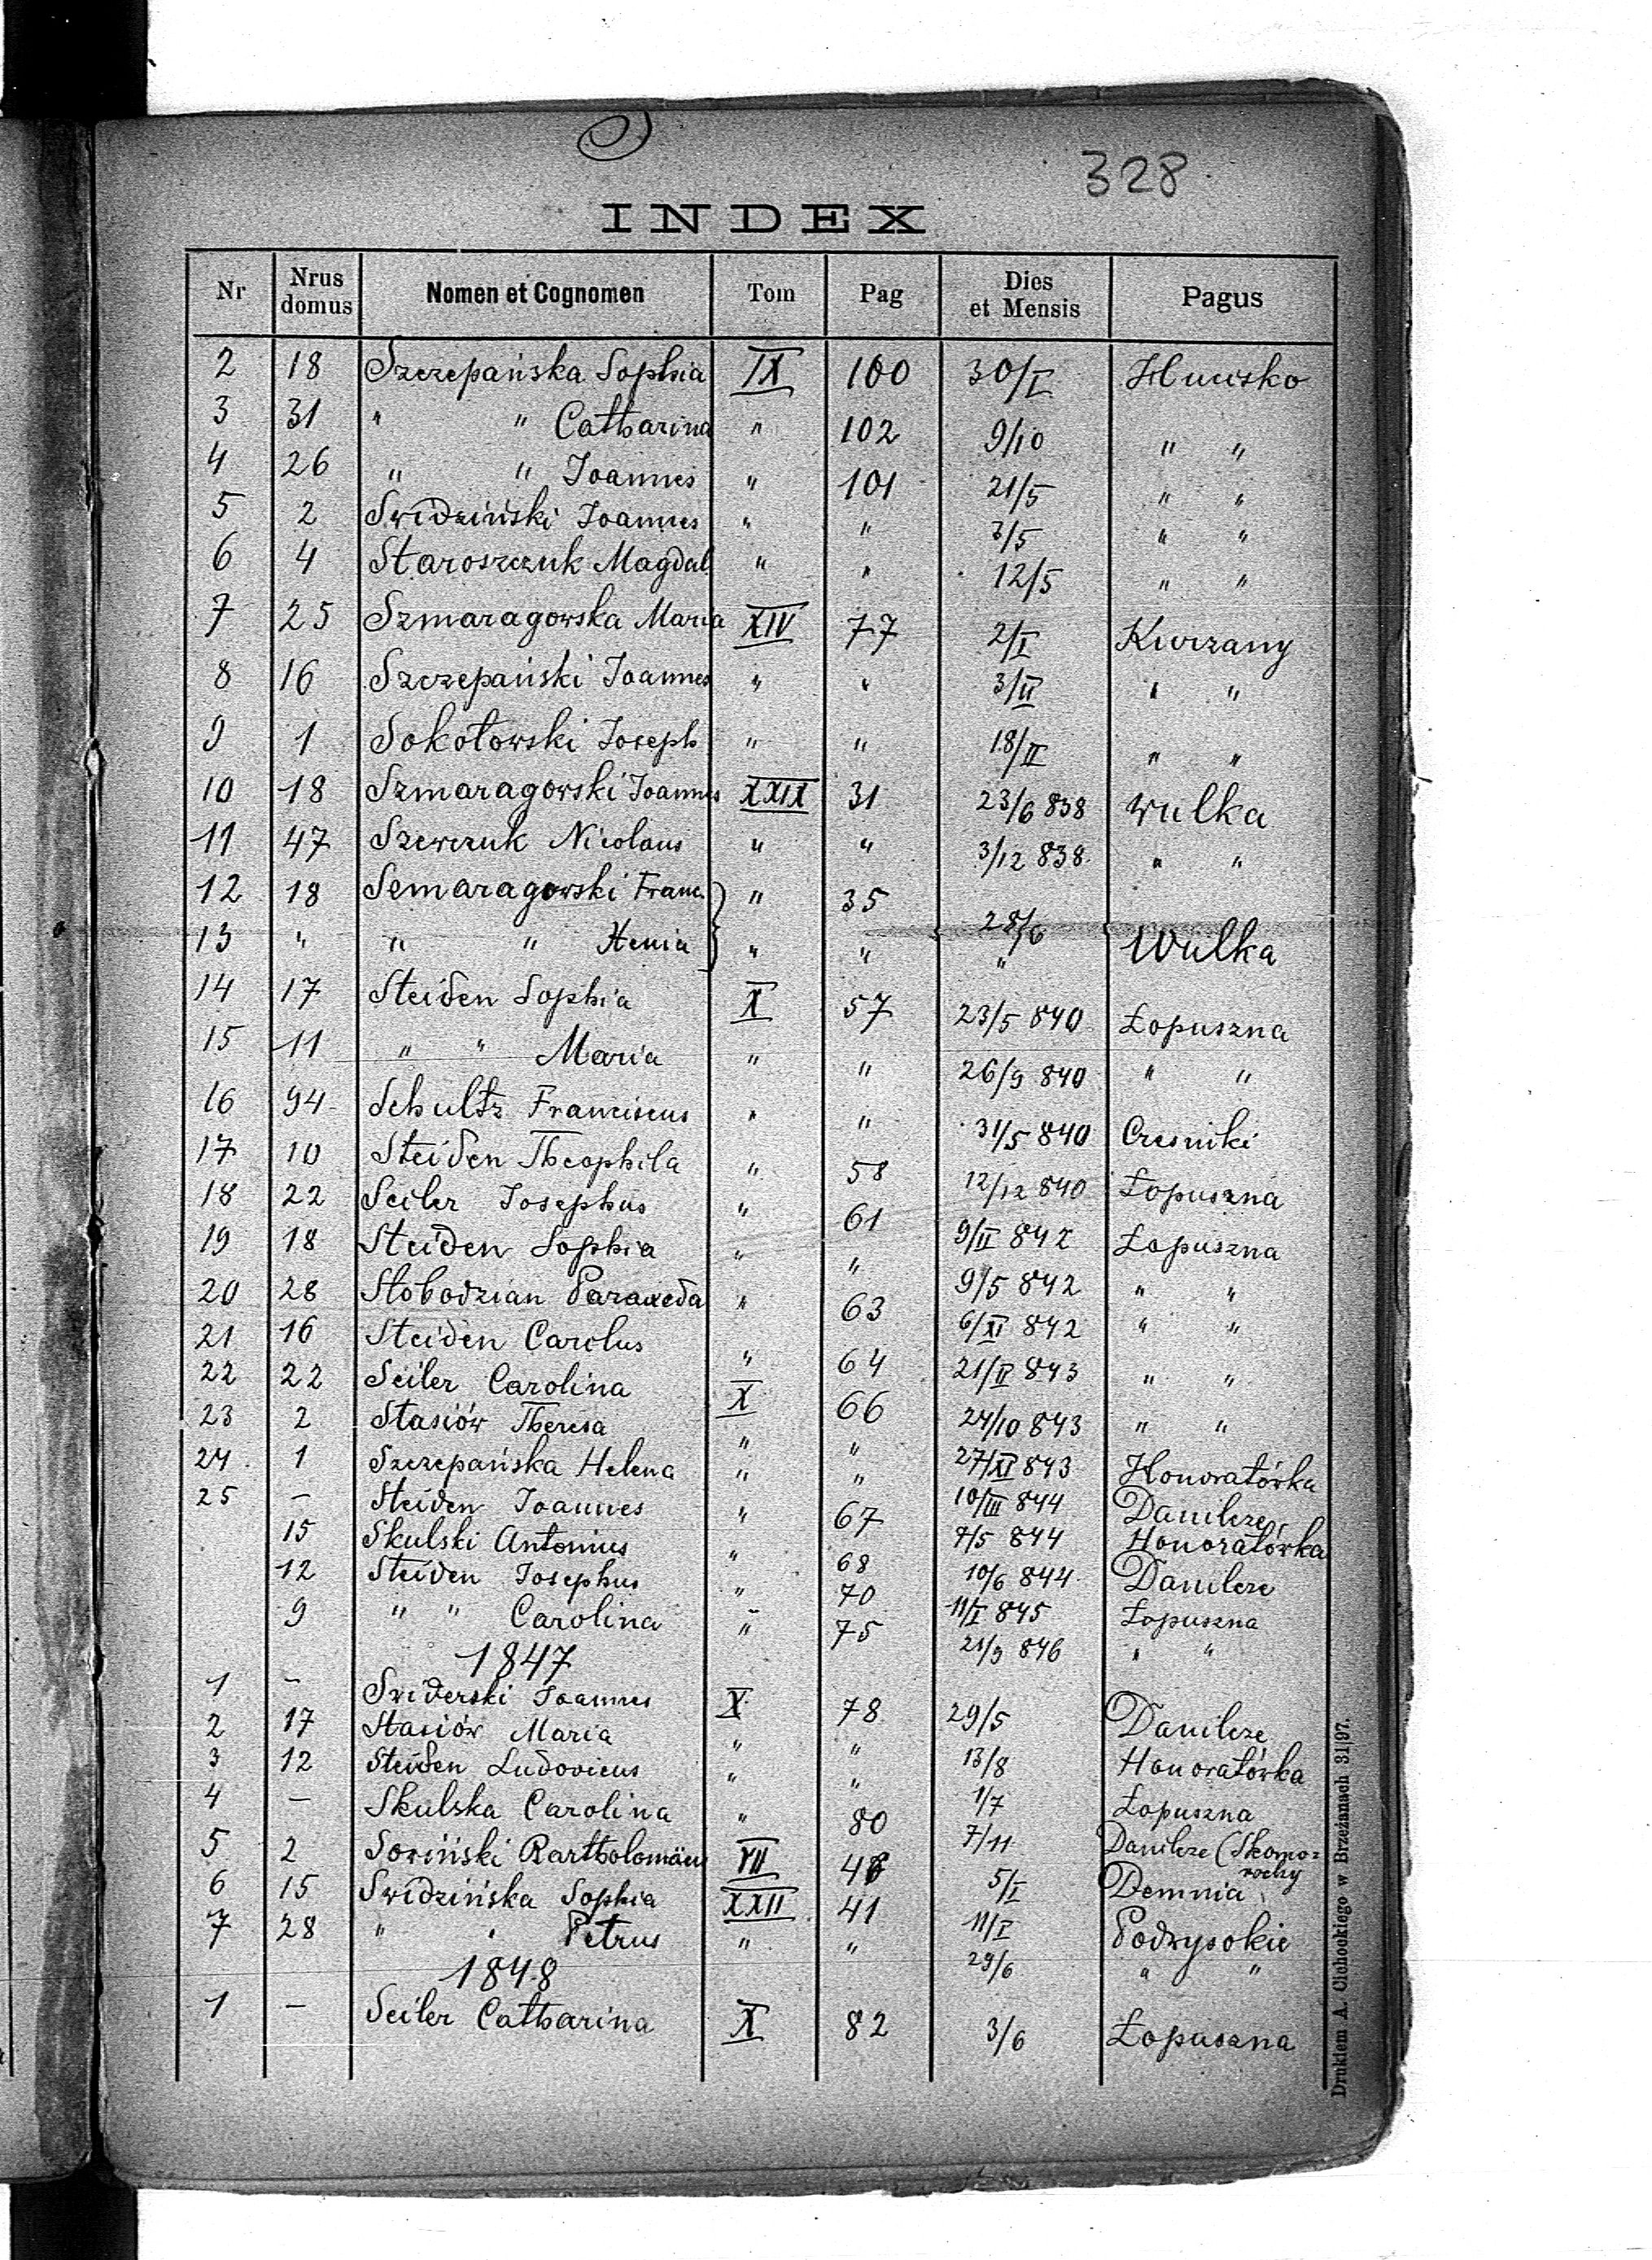 328
INDEX
Nr Nrus domus Nomen et Cognomen Tom Pag Dies et Mensis Pagus
2 18 Szczepańska Sophia IX 100 30/I Huwsko
3 31 " " Catharina " 102 9/10 " "
4 26 " " Joannes " 101 21/5 " "
5 2 Swidziński Joannes " " 3/5 " "
6 4 Staroszczuk Magdal. " " 12/5 " "
7 25 Szmaragowska Maria XIV 77 2/I Kurzany
8 16 Szczepański Joannes " " 3/II " "
9 1 Sokołowski Joseph " " 18/II " "
10 18 Szmaragowski Joannes XXIX 31 23/6 838 Wulka
11 47 Szewczuk Nicolaus " " 3/12 838 " "
12 18 Semaragowski Franc. " 35 28/6
13 " " " Henia " " " Wulka
14 17 Steiden Sophia X 57 23/5 840 Łopuszna
15 11 " " Maria " " 26/9 840 " "
16 94 Schultz Franciscus " " 31/5 840 Czesniki
17 10 Steiden Theophila " 58 12/12 840 Łopuszna
18 22 Seiler Josephus " 61 9/II 842 Łopuszna
19 18 Steiden Sophia " " 9/5 842 " "
20 28 Słobodzian Paraxeda " 63 6/XI 842 " "
21 16 Steiden Carolus " 64 21/II 843 " "
22 22 Seiler Carolina X 66 24/10 843 " "
23 2 Stasiów Theresa " " 27/XI 843 Honoratówka
24 1 Szczepańska Helena " " 10/III 844 Danilcze
25 – Steiden Joannes " 67 7/5 844 Honoratówka
15 Skulski Antonius " 68 10/6 844 Danilcze
12 Steiden Josephus " 70 11/I 845 Łopuszna
9 " " Carolina " 75 21/9 846 " "
1847
1 – Swiderski Joannes X 78 29/5 Danilcze
2 17 Stasiów Maria " " 13/8 Honoratówka
3 12 Steiden Ludovicus " " 1/7 Łopuszna
4 – Skulska Carolina " 80 7/11 Danilcze (Skomo=
rochy
5 2 Sowiński Bartholomäus VII 5/I Demnia
6 15 Swidzińska Sophia XXII 41 11/I Podwysokie
7 28 " " Petrus " " 29/6 " "
1848
1 – Seiler Catharina X 82 3/6 Łopuszna
Drukiem A. Cichockiego w Brzeżanach 31|97.